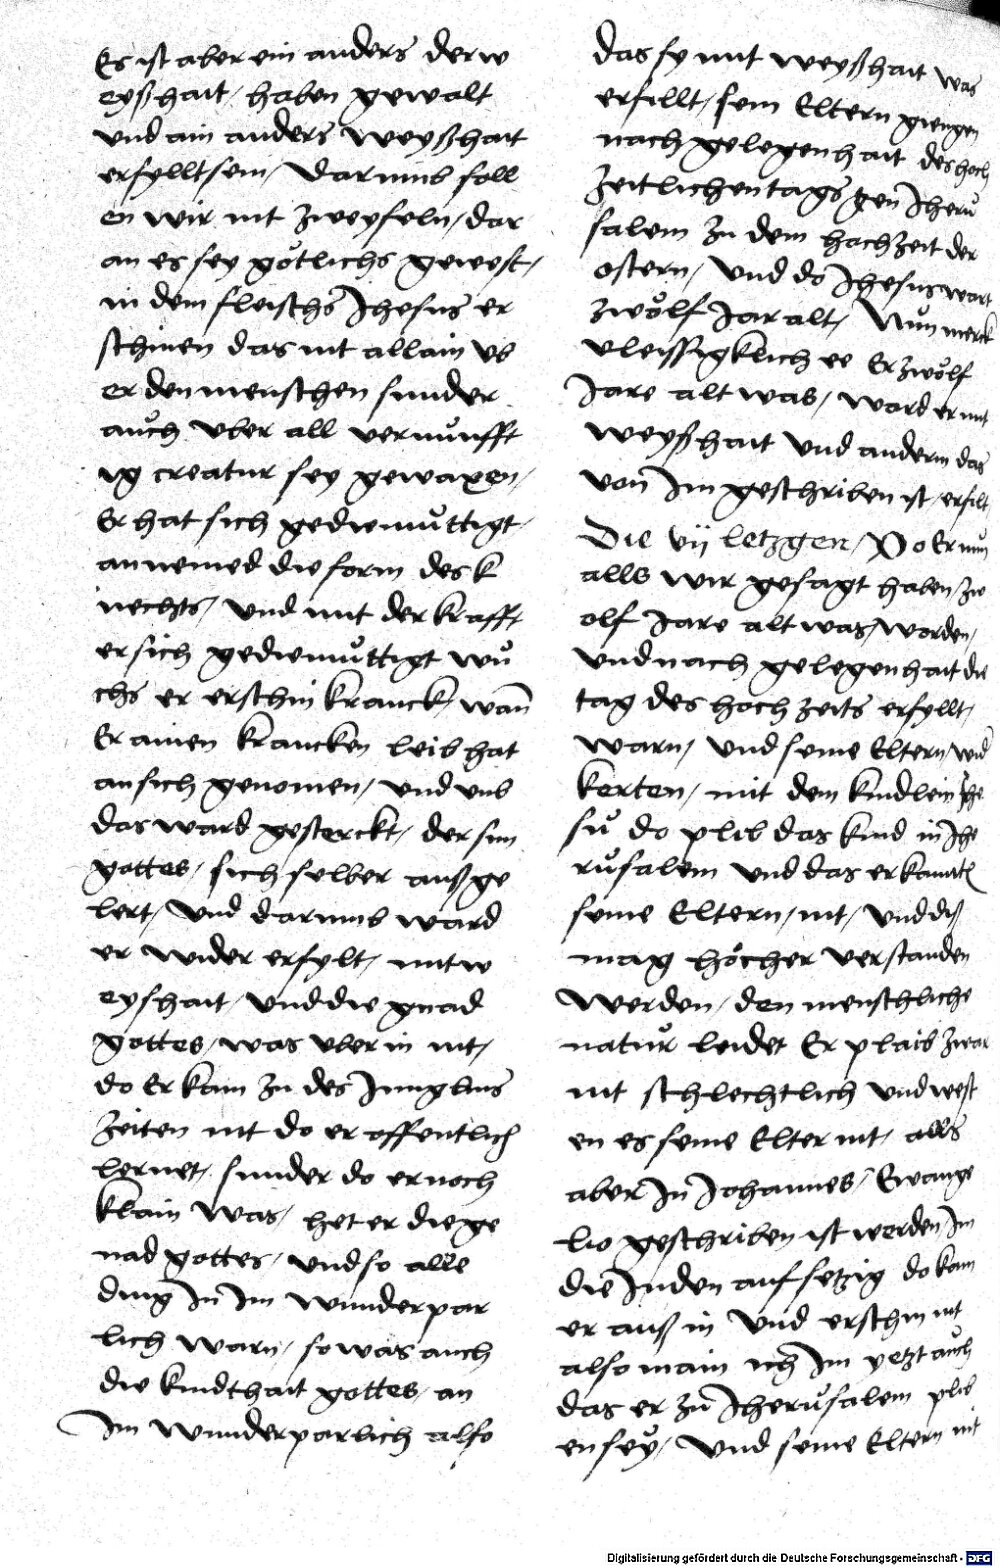 Es ist aber ein anders der w
eyßhait / haben gewalt
vnd ain anders weyßhait
erfyllt sein / Darumb soll
en wir nit zweyfeln / dar
an es sey götlichs gewest /
in dem fleischs Jhesus er
schinen das nit allain vb
er den menschen sunder
auch vber all vernunfft
ig creatur sey gewaxen /
Er hat sich gediemuttigt /
annemed die form des k
nechts / vnd mit der krafft
er sich gediemuttigt wu
chs er erschin kranck / wan̄
Er ainen krancken leib hat
an sich genomen / vnd vmb
das ward gesterckt / der sun
gottes / sich selber auß ge
lert / vnd darumb ward
er wider erfylt / mit w
eyshait / vnd die gnad
gottes / was vber in nit /
do Er kam zu des Junglins
zeiten nit do er offentlich
lernet / sunder do er noch
klain was / het er die ge
nad gottes / vnd so alle
ding Jn Jm wunderpar
lich warn / so was auch
die kindthait gottes / an
Jm wunderparlich also
das sy mit weyßhait was
erfillt / sein Eltern giengen
nach gelegenhait des hoch
zeitlichen tags gen Jheru
salem zu dem hochzeit der
ostern / vnd do Jhesus wart
zwölf Jar alt / Nun merck
vleissigklich ee Er zwölf
Jare alt was / ward er mit
weyßhait vnd anderm das
von Jm geschriben ist / erfilt
Die vij letzgen / Do Er nun
alls wir gesagt haben / zw
olf Jare alt was / worden /
vnd nach gelegenhait die
tag des hochzeits erfyllt /
warn / vnd seine Eltern / wid
kerten / mit dem kindlein Jhe
su do plib das kind in Jhe
rusalem vnd das erkannten
seine Eltern / nit / vnd diß
mag höcher verstanden
werden / den menschliche
natur leidet Er plaib zwar
nit schlechtlich vnd west
en es seine Elter nit / alls
aber Jn Johannes / Ewange
lio geschriben ist werden Jm
die Juden aufsetzig do kam
er auß in vnd erschin nit
also main ich Jm yetzt auch
das er zu Jherusalem plib
en sey / vnd seine Eltern nit
Digitalisierung gefördert durch die Deutsche Forschungsgemeinschaft - DFG